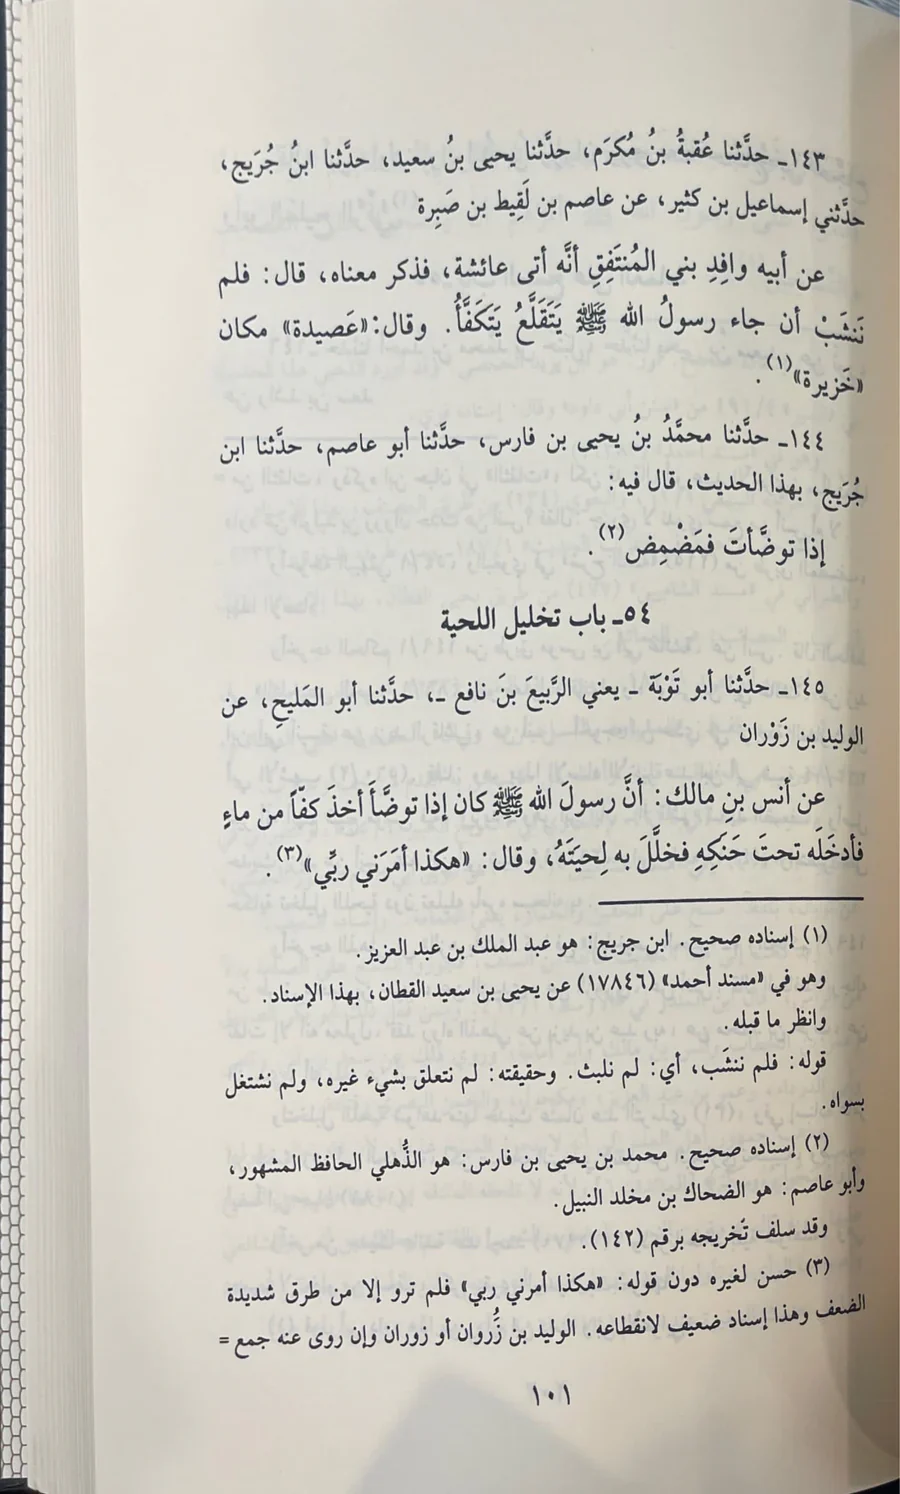 ١٤٣ـ حدَّثنا عُقبةُ بنُ مُكرَم، حدَّثنا يحيى بنُ سعيد، حدَّثنا ابنُ جُرَيج،
حدَّثني إسماعيل بن كثير، عن عاصم بن لَقِيط بن صَبِرة
عن أبيه وافِدِ بني المُنتَفِقِ أنَّه أتى عائشة، فذكر معناه، قال: فلم
نَنشَبْ أن جاء رسولُ الله ﷺ يَتَقَلَّعُ يَتَكَفَّأُ. وقال: «عَصيدة» مكان
«خَزيرة»(١).
١٤٤ـ حدَّثنا محمَّدُ بنُ يحيى بن فارس، حدَّثنا أبو عاصم، حدَّثنا ابن
جُرَيج، بهذا الحديث، قال فيه:
إذا توضَّأتَ فمَضْمِض(٢).
٥٤ـ باب تخليل اللحية
١٤٥ـ حدَّثنا أبو تَوْبَة ـ يعني الرَّبيعَ بنَ نافع ـ، حدَّثنا أبو المَليحِ، عن
الوليد بن زَوْران
عن أنس بنِ مالك: أنَّ رسولَ الله ﷺ كان إذا توضَّأَ أخذَ كفّاً من ماءٍ
فأدخَلَه تحتَ حَنَكِهِ فخلَّلَ به لِحيَتَهُ، وقال: «هكذا أمَرَني ربِّي»(٣).
(١) إسناده صحيح. ابن جريج: هو عبد الملك بن عبد العزيز.
وهو في «مسند أحمد» (١٧٨٤٦) عن يحيى بن سعيد القطان، بهذا الإسناد.
وانظر ما قبله.
قوله: فلم ننشَب، أي: لم نلبث. وحقيقته: لم نتعلق بشيء غيره، ولم نشتغل
بسواه.
(٢) إسناده صحيح. محمد بن يحيى بن فارس: هو الذُّهلي الحافظ المشهور،
وأبو عاصم: هو الضحاك بن مخلد النبيل.
وقد سلف تَخريجه برقم (١٤٢).
(٣) حسن لغيره دون قوله: «هكذا أمرني ربي» فلم ترو إلا من طرق شديدة
الضعف وهذا إسناد ضعيف لانقطاعه. الوليد بن زَُروان أو زوران وإن روى عنه جمع =
١٠١